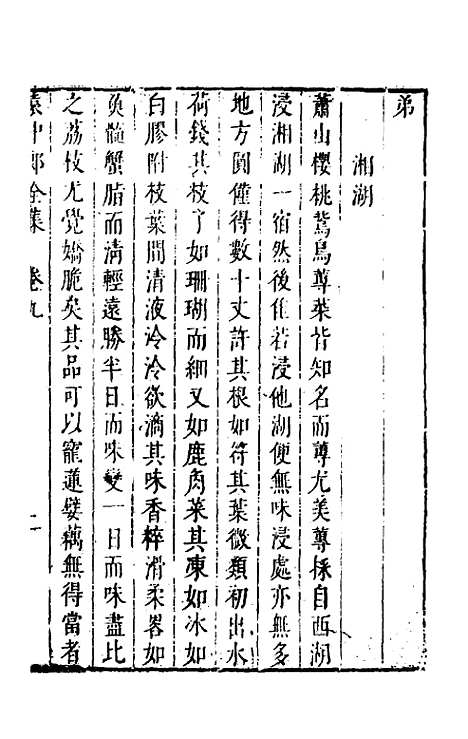 弟
湘湖
蕭山櫻桃鷙鳥蓴菜皆知名而蓴尤美蓴採自西湖
浸湘湖一宿然後佳若浸他湖便無味浸處亦無多
地方圓僅得數十丈許其根如荇其葉微類初出水
荷錢其枝丫如珊瑚而細又如鹿角菜其凍如冰如
白膠附枝葉間清液泠泠欲滴其味香粹滑柔畧如
魚髓蟹脂而清輕遠勝半日而味變一日而味盡比
之荔枝尤覺嬌脆矣其品可以寵蓮嬖藕無得當者
袁中郎全集 卷九 二